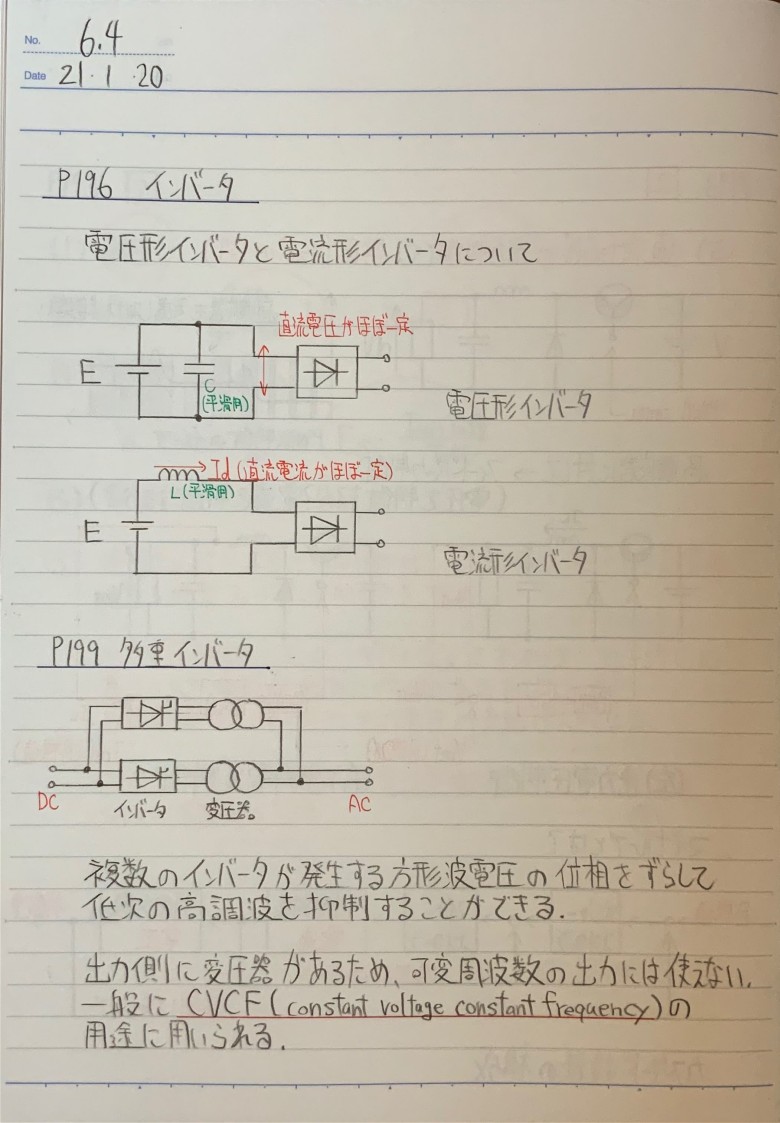 No. 6.4
Date 21・1・20
P196 インバータ
電圧形インバータと電流形インバータについて
直流電圧がほぼ一定
E
C
(平滑用)
電圧形インバータ
Id (直流電流がほぼ一定)
L(平滑用)
E
電流形インバータ
P199 多重インバータ
DC
インバータ
変圧器。
AC
複数のインバータが発生する方形波電圧の位相をずらして
低次の高調波を抑制することができる.
出力側に変圧器があるため、可変周波数の出力には使えない.
一般に CVCF(constant voltage constant frequency)の
用途に用いられる.